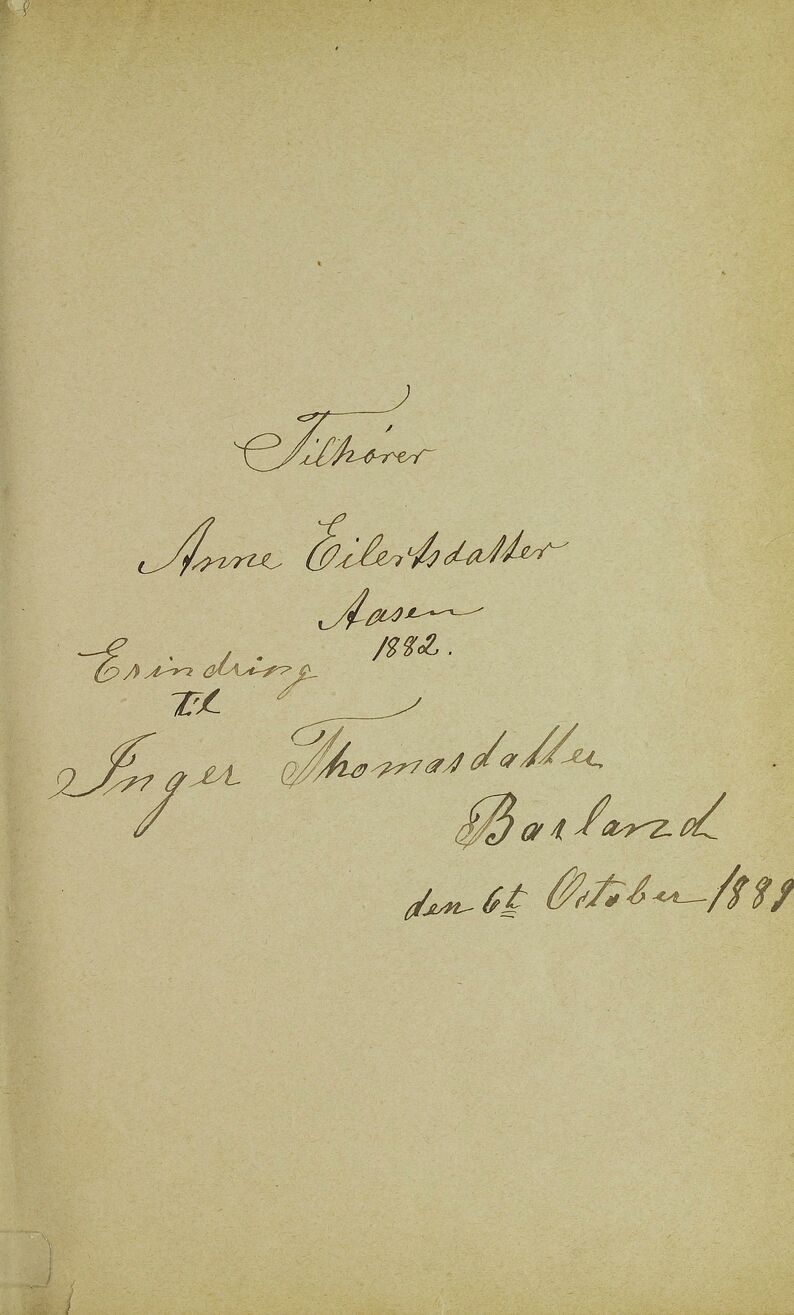 Tilhører
Anne Eilertsdatter
Aasen
1882.
Erindring
Til
Inger Thomasdatter
Barland
den 6te October 1889